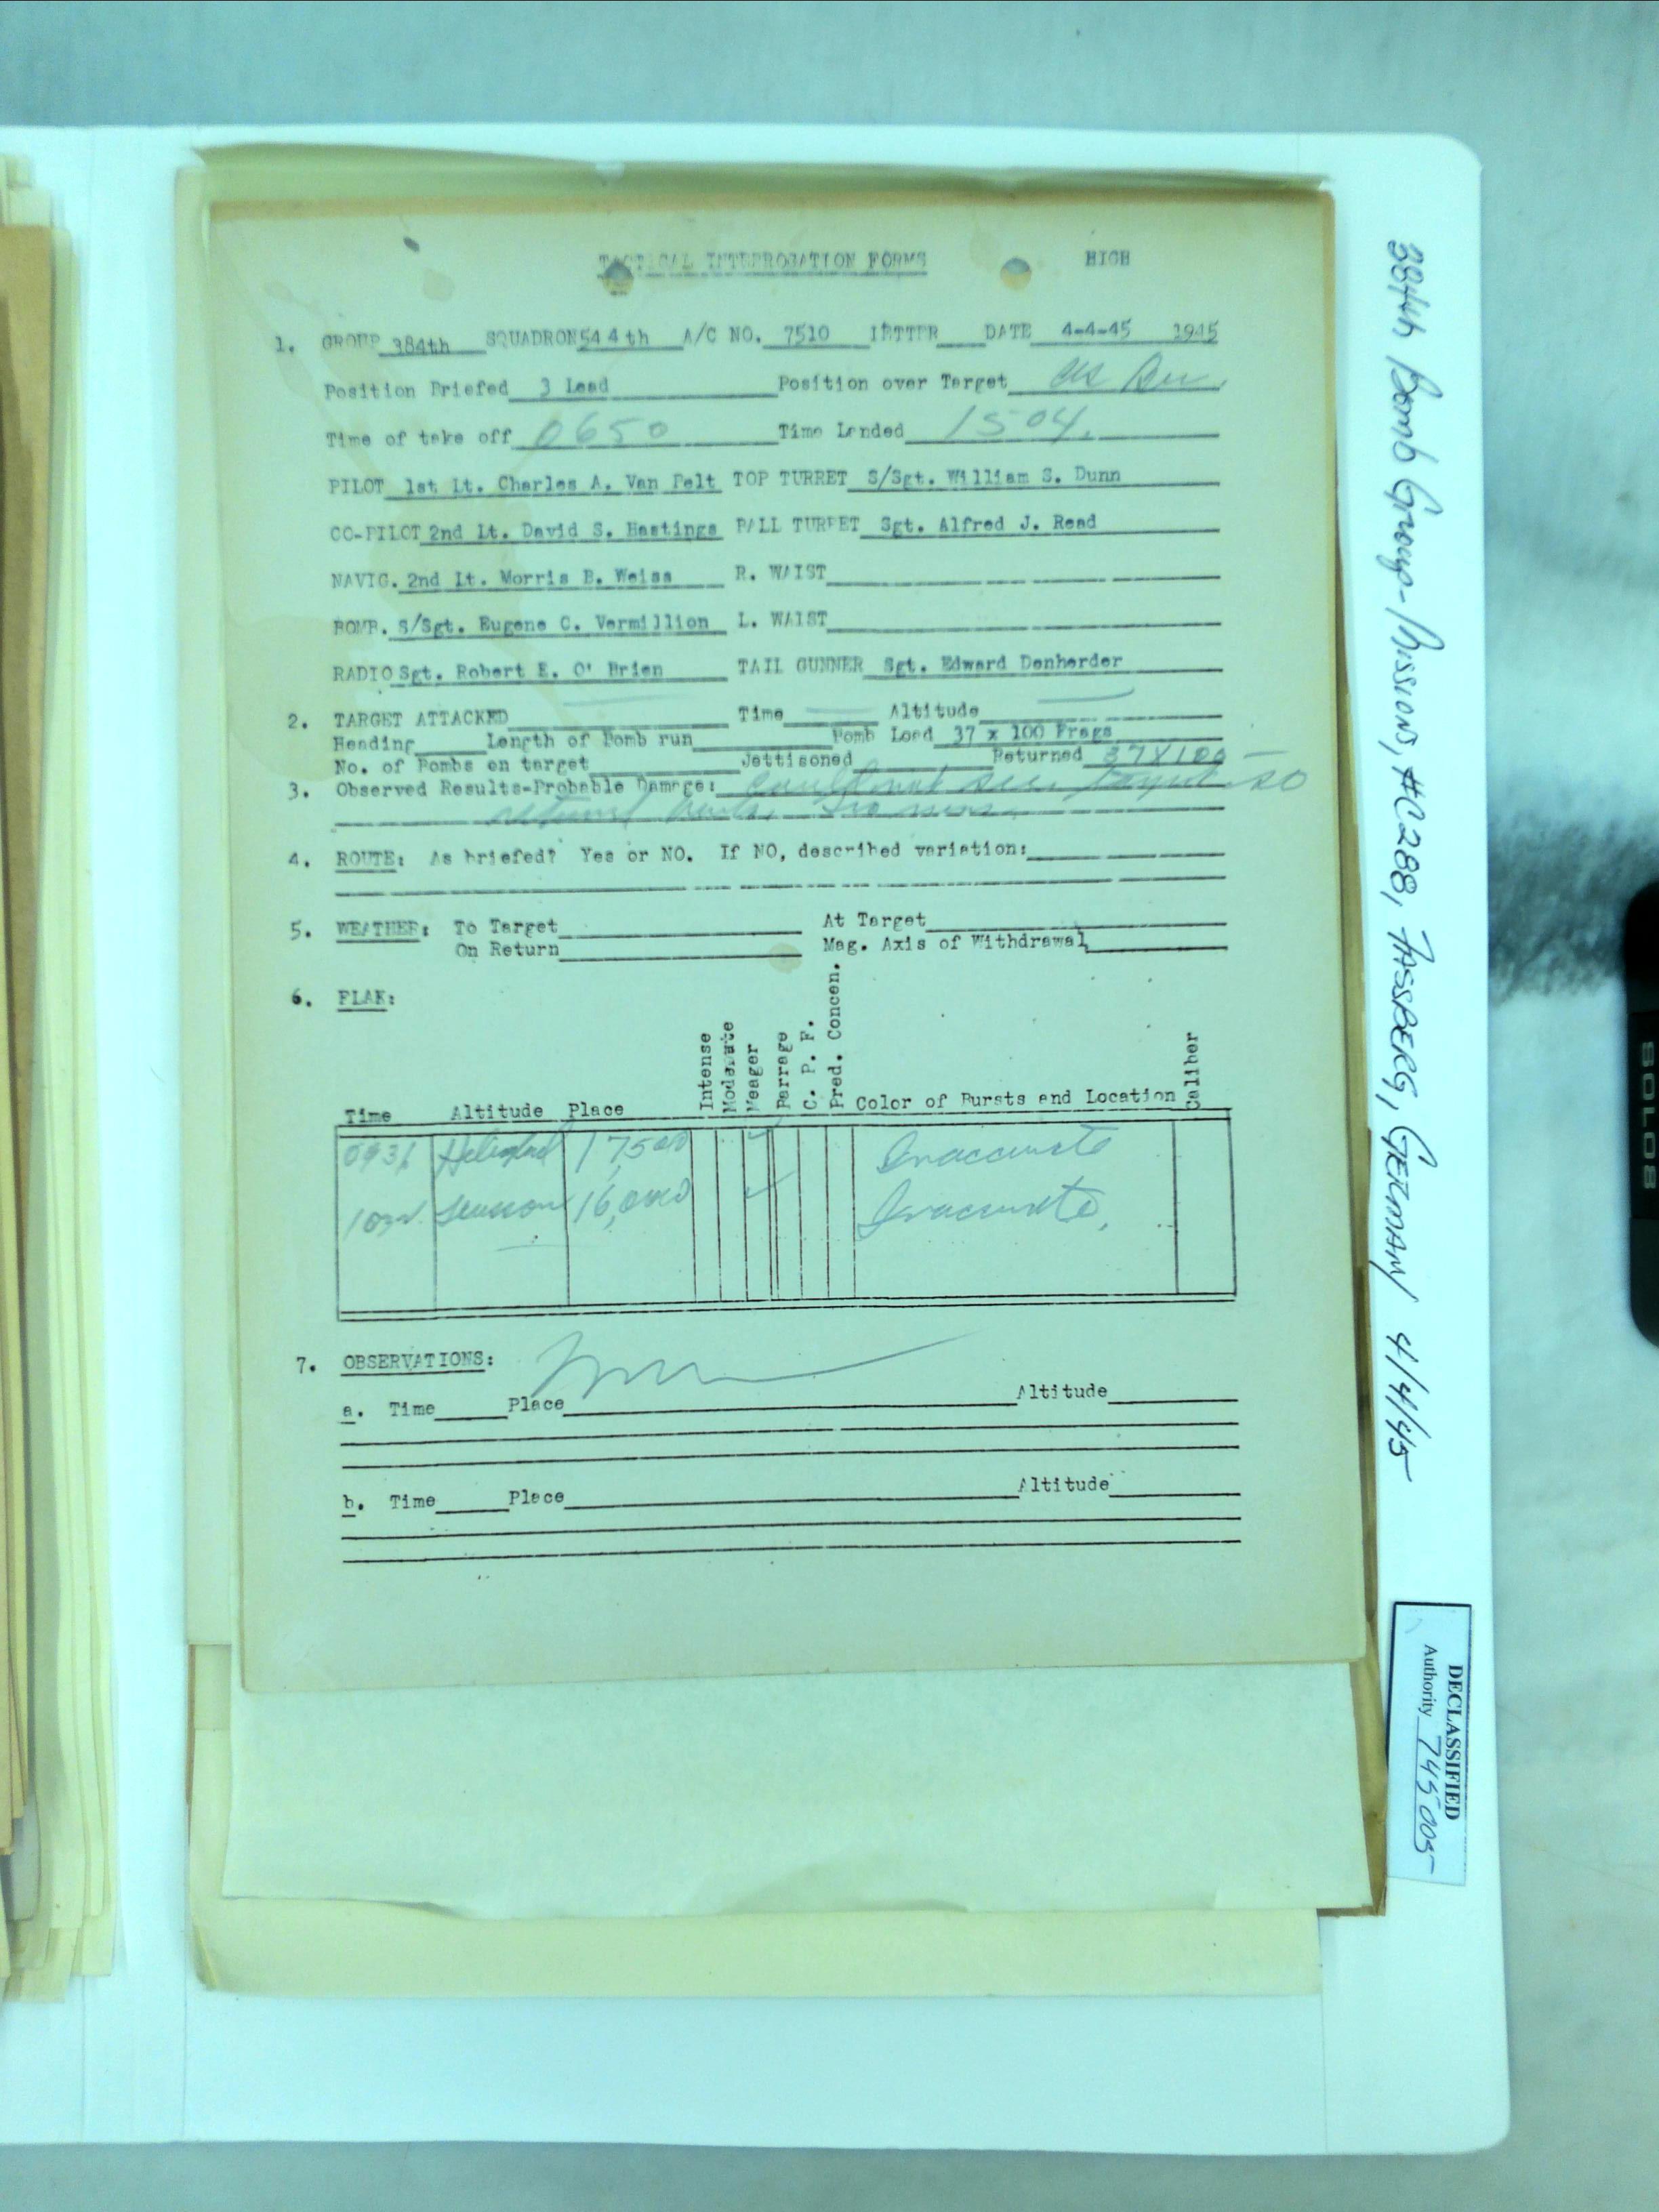 TACTICAL INTERROGATION FORMS HIGH
1. GROUP 384th SQUADRON 544th A/C NO. 7510 LETTER DATE 4-4-45 1945
Position Briefed 3 Lead Position over Target As
Time of take off 0650 Time Landed 1504.
PILOT 1st Lt. Charles A. Van Pelt TOP TURRET S/Sgt. William S. Dunn
CO-PILOT 2nd Lt. David S. Hastings BALL TURRET Sgt. Alfred J. Read
NAVIG. 2nd Lt. Morris B. Weiss R. WAIST
BOMB. S/Sgt. Eugene C. Vermillion L. WAIST
RADIO Sgt. Robert E. O' Brien TAIL GUNNER Sgt. Edward Denherder
2. TARGET ATTACKED Time Altitude
Heading Length of Bomb run Bomb Load 37 x 100 Frags
No. of Bombs on target Jettisoned Returned 37X100
3. Observed Results-Probable Damage: Could not see target so
4. ROUTE: As briefed? Yes or NO. If NO, described variation:
5. WEATHER: To Target At Target
On Return Mag. Axis of Withdrawal
6. FLAK:
Time Altitude Place Intense Moderate Meager Barrage C. P. F. Pred. Concen. Color of Bursts and Location Caliber
0931 17500 Inaccurate
16,000 Inaccurate.
7. OBSERVATIONS:
a. Time Place Altitude
b. Time Place Altitude
384th Bomb Group-Missions, #C288, FASSBERG, GERMANY 4/4/45
DECLASSIFIED
Authority 745005
SOLO8